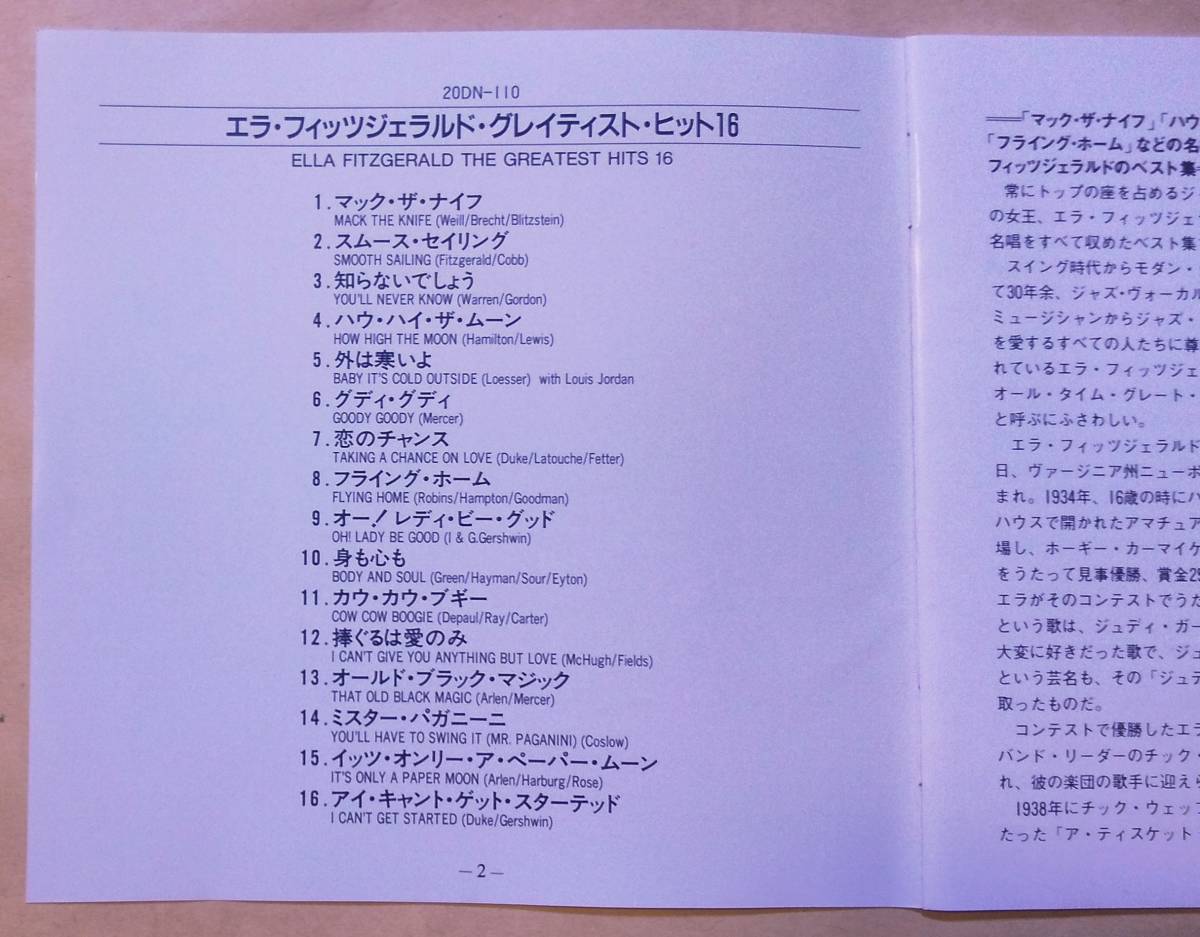 20DN-110
エラ・フィッツジェラルド・グレイティスト・ヒット16
ELLA FITZGERALD THE GREATEST HITS 16
1. マック・ザ・ナイフ
MACK THE KNIFE (Weill/Brecht/Blitzstein)
2. スムース・セイリング
SMOOTH SAILING (Fitzgerald/Cobb)
3. 知らないでしょう
YOU'LL NEVER KNOW (Warren/Gordon)
4. ハウ・ハイ・ザ・ムーン
HOW HIGH THE MOON (Hamilton/Lewis)
5. 外は寒いよ
BABY IT'S COLD OUTSIDE (Loesser) with Louis Jordan
6. グディ・グディ
GOODY GOODY (Mercer)
7. 恋のチャンス
TAKING A CHANCE ON LOVE (Duke/Latouche/Fetter)
8. フライング・ホーム
FLYING HOME (Robins/Hampton/Goodman)
9. オー！レディ・ビー・グッド
OH! LADY BE GOOD (I & G.Gershwin)
10. 身も心も
BODY AND SOUL (Green/Hayman/Sour/Eyton)
11. カウ・カウ・ブギー
COW COW BOOGIE (Depaul/Ray/Carter)
12. 捧ぐるは愛のみ
I CAN'T GIVE YOU ANYTHING BUT LOVE (McHugh/Fields)
13. オールド・ブラック・マジック
THAT OLD BLACK MAGIC (Arlen/Mercer)
14. ミスター・パガニーニ
YOU'LL HAVE TO SWING IT (MR. PAGANINI) (Coslow)
15. イッツ・オンリー・ア・ペーパー・ムーン
IT'S ONLY A PAPER MOON (Arlen/Harburg/Rose)
16. アイ・キャント・ゲット・スターテッド
I CAN'T GET STARTED (Duke/Gershwin)
—2—
——「マック・ザ・ナイフ」「ハウ
「フライング・ホーム」などの名
フィッツジェラルドのベスト集
常にトップの座を占めるジ
の女王、エラ・フィッツジェ
名唱をすべて収めたベスト集
スイング時代からモダン・
て30年余、ジャズ・ヴォーカル
ミュージシャンからジャズ・
を愛するすべての人たちに尊
れているエラ・フィッツジェ
オール・タイム・グレート・
と呼ぶにふさわしい。
エラ・フィッツジェラルド
日、ヴァージニア州ニューポ
まれ。1934年、16歳の時にハ
ハウスで開かれたアマチュア
場し、ホーギー・カーマイケ
をうたって見事優勝、賞金25
エラがそのコンテストでうた
という歌は、ジュディ・ガー
大変に好きだった歌で、ジュ
という芸名も、その「ジュデ
取ったものだ。
コンテストで優勝したエラ
バンド・リーダーのチック・
れ、彼の楽団の歌手に迎えら
1938年にチック・ウェッブ
たった「ア・ティスケット